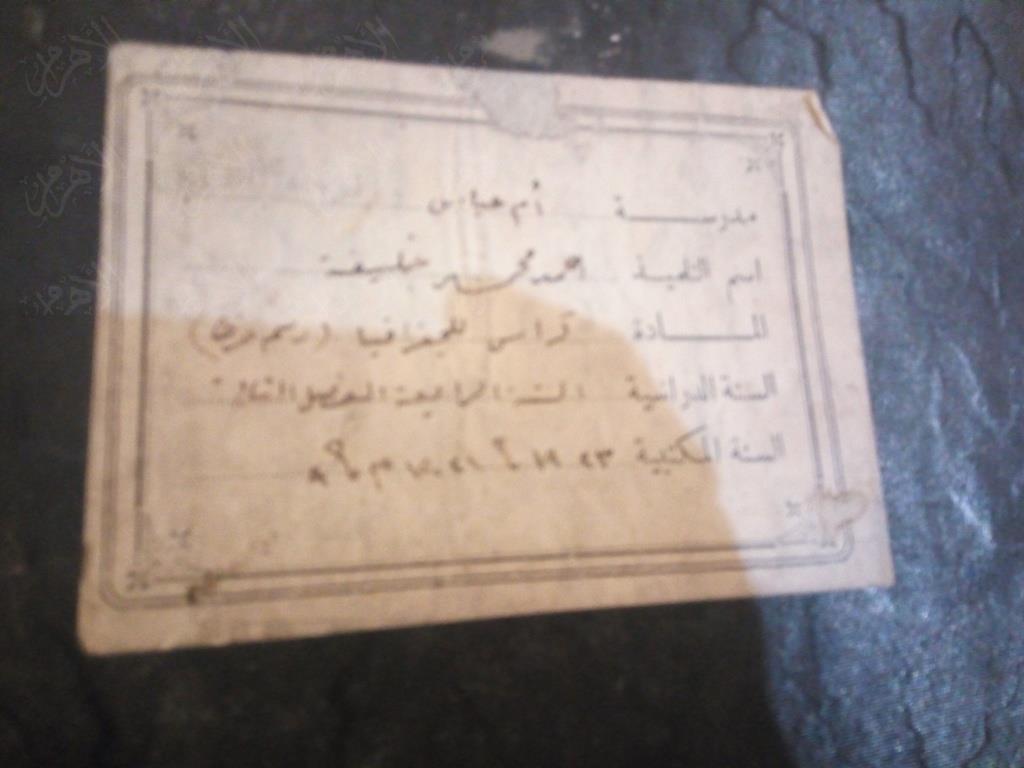 مدرسة أم عباس
اسم التلميذ احمد محمد خليفة
المادة كراس للجغرافيا (رسم خرط)
السنة الدراسية السنة الرابعة الفصل الثالث
السنة المكتبية